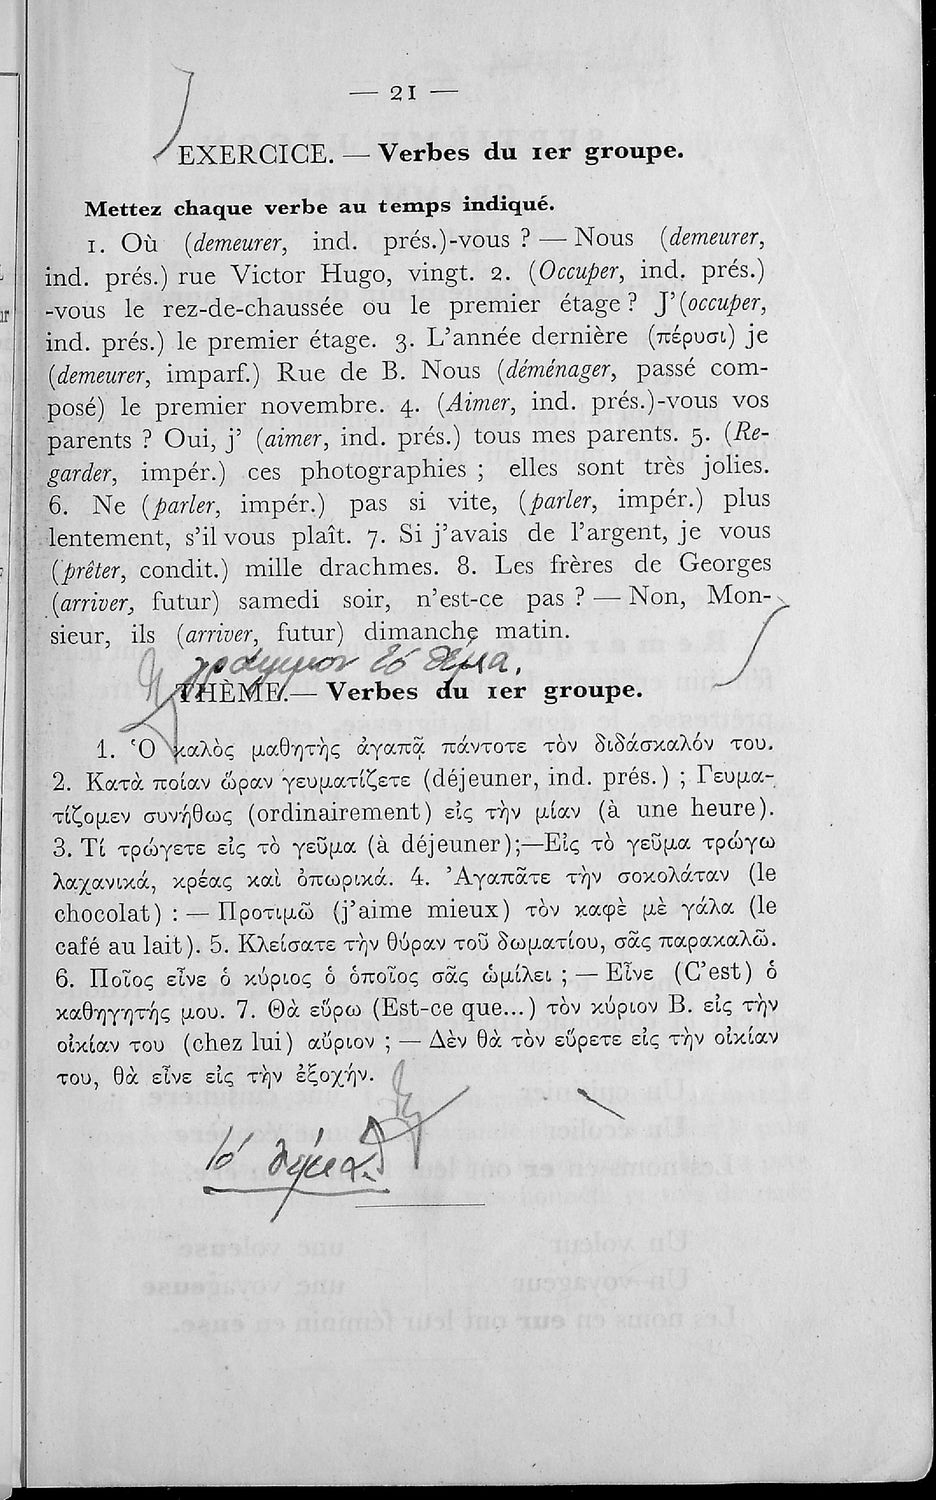 — 21 —
EXERCICE. — Verbes du 1er groupe.
Mettez chaque verbe au temps indiqué.
1. Où (demeurer, ind. prés.)-vous ? — Nous (demeurer,
ind. prés.) rue Victor Hugo, vingt. 2. (Occuper, ind. prés.)
-vous le rez-de-chaussée ou le premier étage ? J' (occuper,
ind. prés.) le premier étage. 3. L'année dernière (πέρυσι) je
(demeurer, imparf.) Rue de B. Nous (déménager, passé com-
posé) le premier novembre. 4. (Aimer, ind. prés.)-vous vos
parents ? Oui, j' (aimer, ind. prés.) tous mes parents. 5. (Re-
garder, impér.) ces photographies ; elles sont très jolies.
6. Ne (parler, impér.) pas si vite, (parler, impér.) plus
lentement, s'il vous plaît. 7. Si j'avais de l'argent, je vous
(prêter, condit.) mille drachmes. 8. Les frères de Georges
(arriver, futur) samedi soir, n'est-ce pas ? — Non, Mon-
sieur, ils (arriver, futur) dimanche matin.
THÈME. — Verbes du 1er groupe.
1. Ὁ καλὸς μαθητὴς ἀγαπᾷ πάντοτε τὸν διδάσκαλόν του.
2. Κατὰ ποίαν ὥραν γευματίζετε (déjeuner, ind. prés.) ; Γευμα-
τίζομεν συνήθως (ordinairement) εἰς τὴν μίαν (à une heure).
3. Τί τρώγετε εἰς τὸ γεῦμα (à déjeuner);—Εἰς τὸ γεῦμα τρώγω
λαχανικά, κρέας καὶ ὀπωρικά. 4. Ἀγαπᾶτε τὴν σοκολάταν (le
chocolat) : — Προτιμῶ (j'aime mieux) τὸν καφὲ μὲ γάλα (le
café au lait). 5. Κλείσατε τὴν θύραν τοῦ δωματίου, σᾶς παρακαλῶ.
6. Ποῖος εἶνε ὁ κύριος ὁ ὁποῖος σᾶς ὡμίλει ; — Εἶνε (C'est) ὁ
καθηγητής μου. 7. Θὰ εὕρω (Est-ce que...) τὸν κύριον Β. εἰς τὴν
οἰκίαν του (chez lui) αὔριον ; — Δὲν θὰ τὸν εὕρετε εἰς τὴν οἰκίαν
του, θὰ εἶνε εἰς τὴν ἐξοχήν.